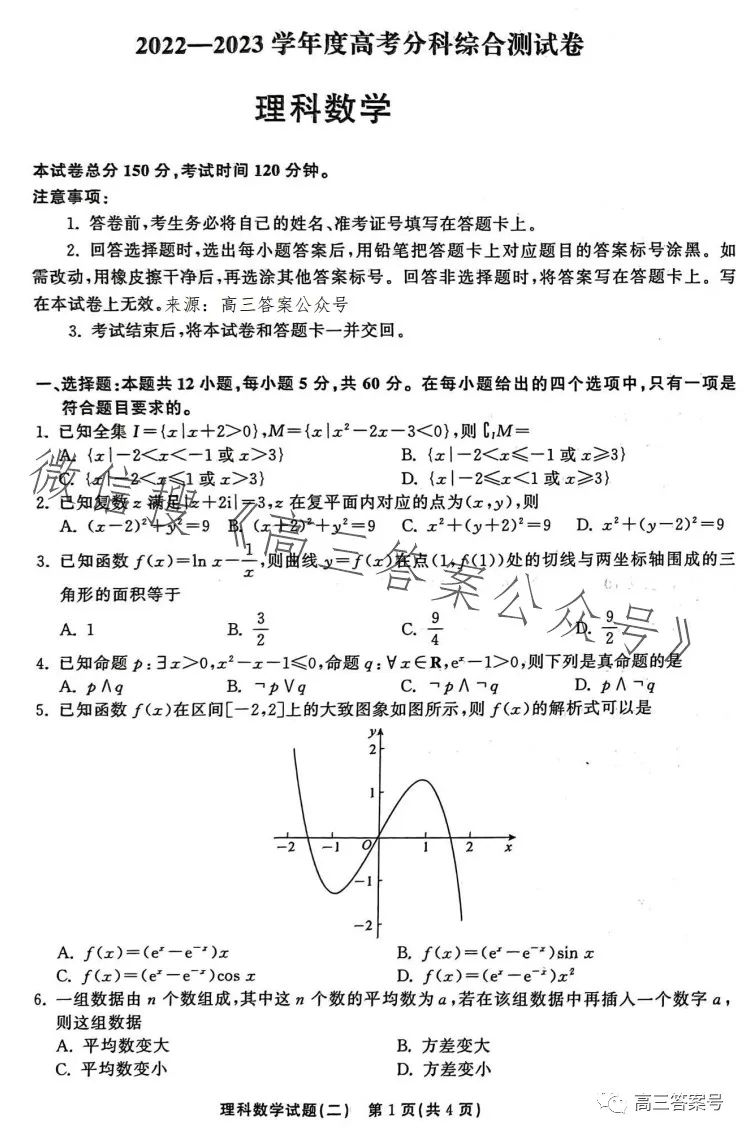 2022—2023 学年度高考分科综合测试卷
理科数学
本试卷总分 150 分,考试时间 120 分钟。
注意事项:
1. 答卷前,考生务必将自己的姓名、准考证号填写在答题卡上。
2. 回答选择题时,选出每小题答案后,用铅笔把答题卡上对应题目的答案标号涂黑。如
需改动,用橡皮擦干净后,再选涂其他答案标号。回答非选择题时,将答案写在答题卡上。写
在本试卷上无效。来源: 高三答案公众号
3. 考试结束后,将本试卷和答题卡一并交回。
一、选择题:本题共 12 小题,每小题 5 分,共 60 分。在每小题给出的四个选项中,只有一项是
符合题目要求的。
1. 已知全集 I={x|x+2>0},M={x|x²-2x-3<0},则∁ᵢM=
A. {x|-2<x<-1 或 x>3} B. {x|-2<x≤-1 或 x≥3}
C. {x|-2<x≤1 或 x>3} D. {x|-2≤x<1 或 x≥3}
2. 已知复数 z 满足|z+2i|=3,z 在复平面内对应的点为(x,y),则
A. (x-2)²+y²=9 B. (x+2)²+y²=9 C. x²+(y+2)²=9 D. x²+(y-2)²=9
3. 已知函数 f(x)=ln x-1/x,则曲线 y=f(x)在点(1,f(1))处的切线与两坐标轴围成的三
角形的面积等于
A. 1 B. 3/2 C. 9/4 D. 9/2
4. 已知命题 p:∃x>0,x²-x-1≤0,命题 q:∀x∈R,eˣ-1>0,则下列是真命题的是
A. p∧q B. ¬p∨q C. ¬p∧¬q D. p∧¬q
5. 已知函数 f(x)在区间[-2,2]上的大致图象如图所示,则 f(x)的解析式可以是
y
2
1
-2 -1 O 1 2 x
-1
-2
A. f(x)=(eˣ-e⁻ˣ)x B. f(x)=(eˣ-e⁻ˣ)sin x
C. f(x)=(eˣ-e⁻ˣ)cos x D. f(x)=(eˣ-e⁻ˣ)x²
6. 一组数据由 n 个数组成,其中这 n 个数的平均数为 a,若在该组数据中再插入一个数字 a,
则这组数据
A. 平均数变大 B. 方差变大
C. 平均数变小 D. 方差变小
理科数学试题(二) 第 1 页(共 4 页)
微信搜《高三答案公众号》
高三答案号